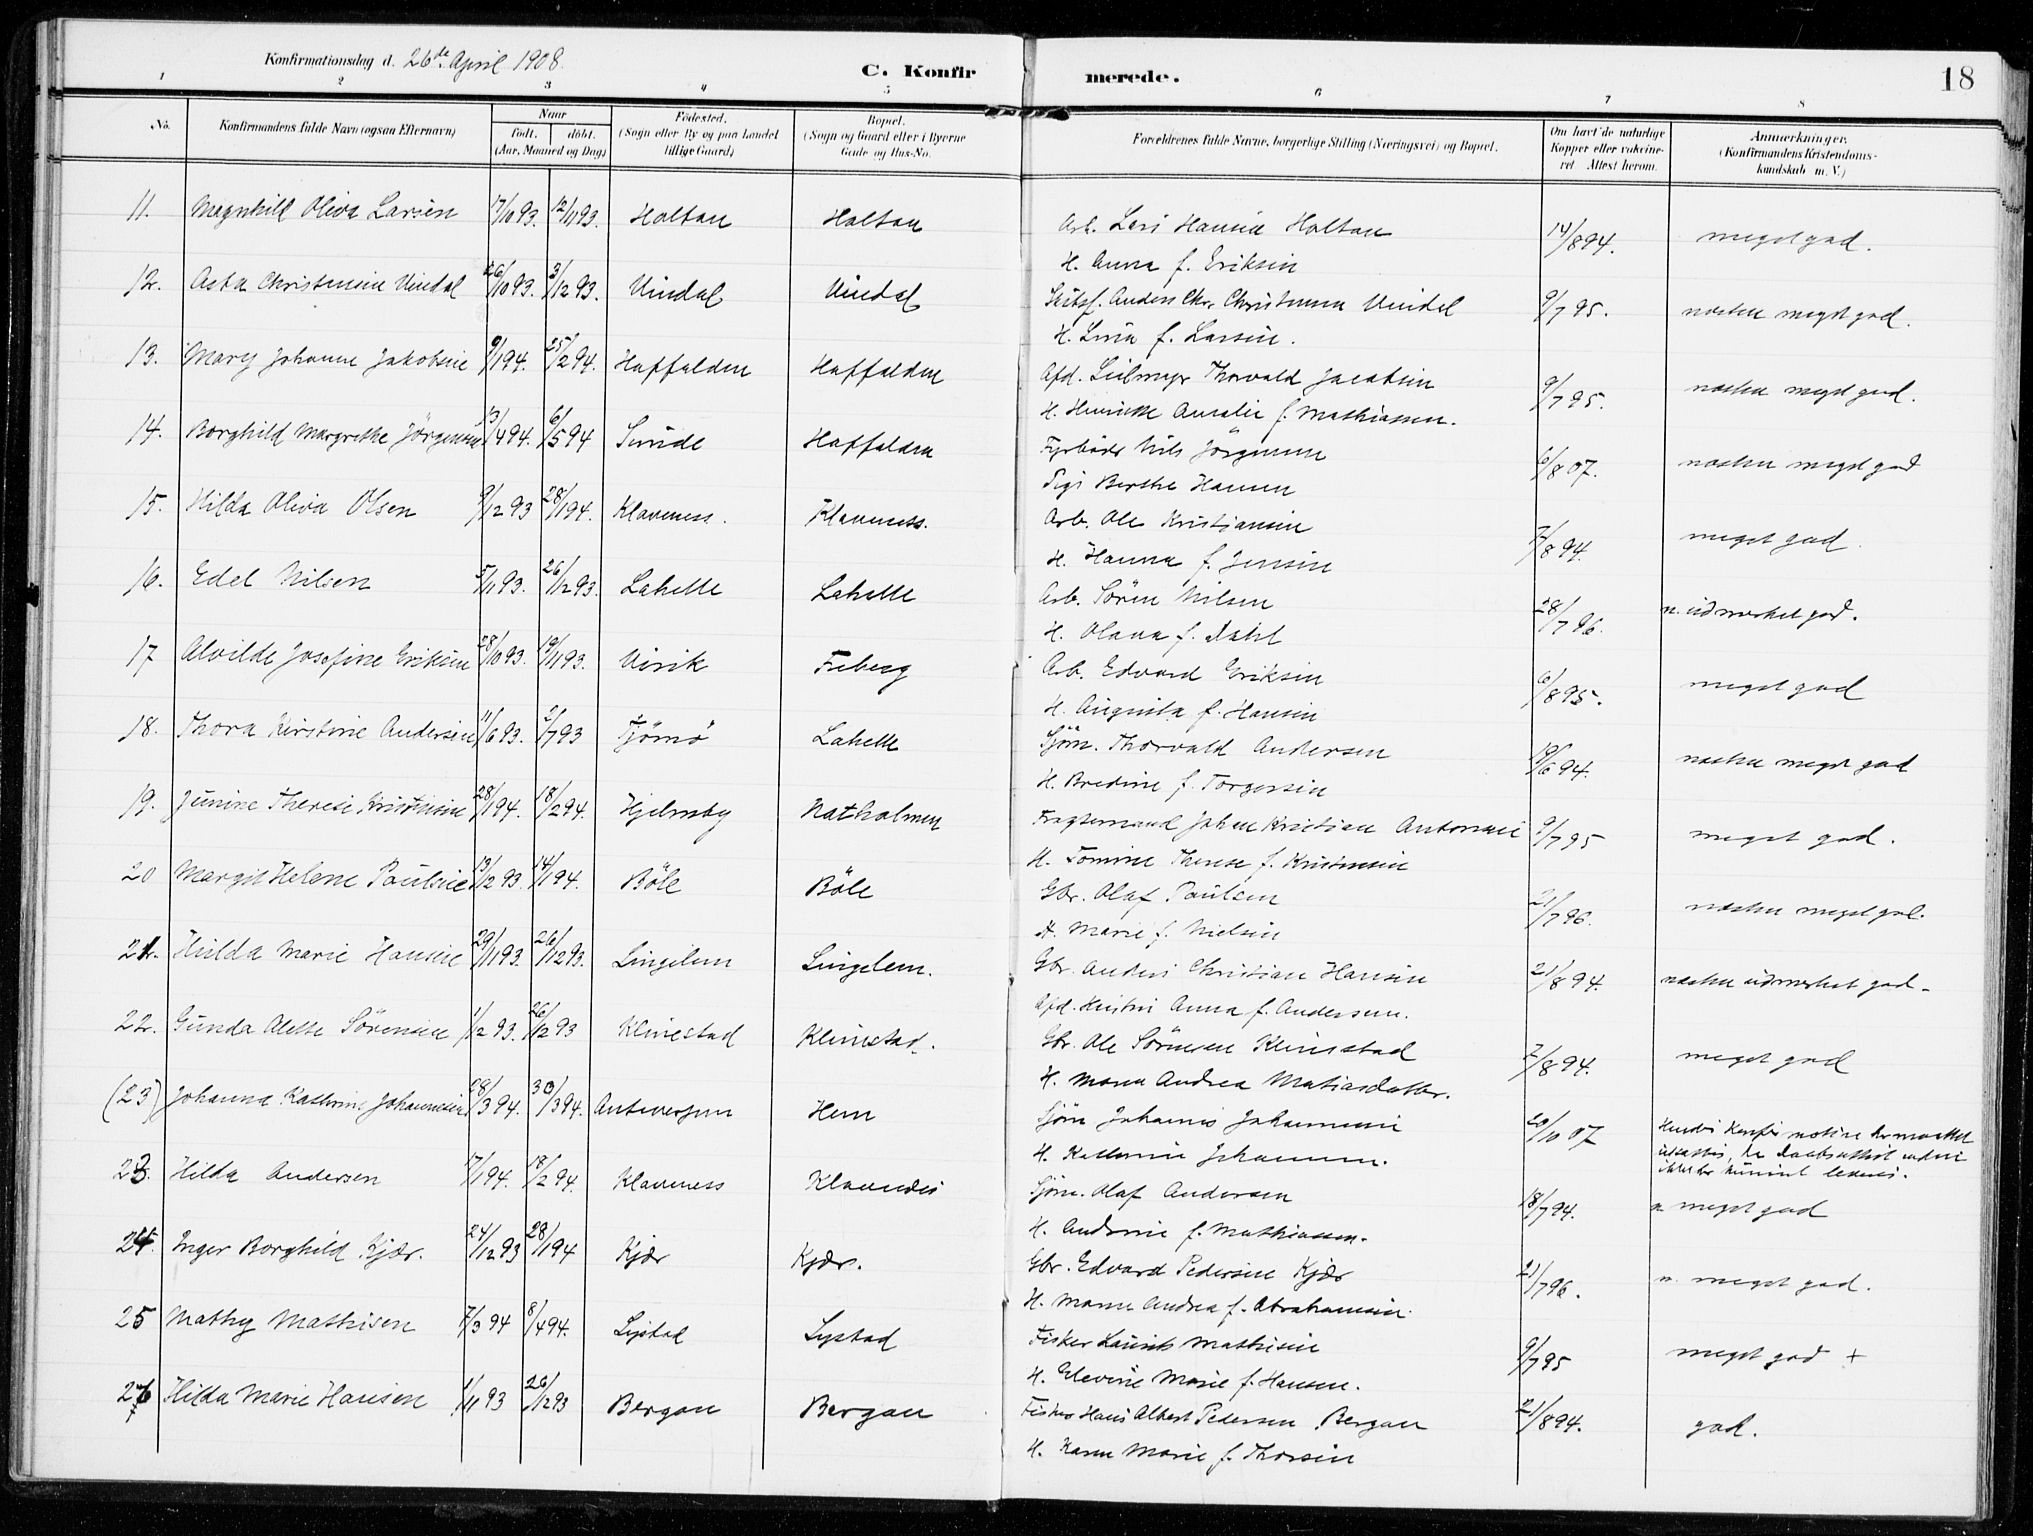 Konfirmationsdag d. 26de April 1908.
C. Konfirmerede.
18
1 2 3 4 5 6 7 8
No.
Konfirmandens fulde Navn (ogsaa Efternavn)
Naar
født. døbt.
(Aar, Maaned og Dag)
Fødested.
(Sogn eller By og paa Landet
tillige Gaard)
Bopæl.
(Sogn og Gaard eller i Byerne
Gade og Hus-No.
Forældrenes fulde Navne, borgerlige Stilling (Næringsvei) og Bopæl.
Om havt de naturlige
Kopper eller vakcine-
ret. Attest herom.
Anmærkninger.
(Konfirmandens Kristendoms-
kundskab m. V.)
11. Magnhild Oliva Larsen 17/10 93. 12/11 93. Holtan Holtan Arb. Lars Hansen Holtan 14/8 94. meget god.
H. Anna f. Eriksen
12. Asta Christensen Vindal 26/10 93. 3/12 93. Vindal Vindal Anders Chr. Christensen Vindal 9/7 95. næsten meget god.
H. Lina f. Larsen.
13. Mary Johanne Jakobsen 9/1 94. 25/2 94. Haffalden Haffalden Afd. Thorvald Jacobsen 9/7 95. næsten meget god.
H. Henriette Amalie f. Mathiassen.
14. Borghild Margrethe Jörgensen 13/4 94. 6/5 94 Sunde Haffalden Fyrböder Nils Jörgensen 6/8 07. næsten meget god
Pige Berthe Hansen
15. Hilda Oliva Olsen 9/12 93 28/1 94. Klaveness. Klaveness. Arb. Ole Kristiansen 7/8 94. meget god.
H. Hanna f. Jensen
16. Edel Nilsen 5/11 93. 26/12 93. Lahelle Lahelle Arb. Sören Nilsen 28/7 96. n. udmerket god.
H. Olava f. Dahl
17 Alvilde Josefine Eriksen 28/10 93. 19/11 93. Virik Freberg Arb. Edvard Eriksen 6/8 95. meget god
H. Augusta f. Hansen
18. Thora Kirstine Andersen 11/6 93. 2/7 93 Tjömö Lahelle Sjöm. Thorvald Andersen 19/6 94. næsten meget god
H. Bredine f. Torgersen
19. Junine Therese Kristensen 28/1 94. 18/2 94. Hjelmsby Natholmen Fragtemand Johan Kristian Antonsen 9/7 95 meget god.
H. Tomine Therese f. Kristensen
20 Margit Helene Paulsen 13/12 93. 14/1 94. Böle Böle Gbr. Olaf Paulsen 21/7 96. næsten meget god.
H. Marie f. Nielsen
21. Hulda Marie Hansen 29/11 93. 26/12 93. Lingelem Lingelem. Gbr. Anders Christian Hansen 21/8 94. næsten udmerket god.
Afd. Hustru Anna f. Andersen.
22. Gunda Alette Sörensen 1/12 93. 26/12 93 Klinestad Klinestad. Gbr. Ole Sörensen Klinestad 7/8 94. meget god
H. Maren Andrea Matiasdatter.
(23) Johanna Kathrine Johannesen 28/3 94. 30/3 94. Antwerpen Hem Sjöm Johannes Johannesen 20/10 07 Hendes Konfirmation er maattet
udsættes, da Daabsattest endnu
ikke har kunnet leveres.
H. Kathrine Johannesen.
23. Hilda Andersen 17/1 94. 18/2 94. Klaveness Klavenes Sjöm. Olaf Andersen 18/7 94. n. meget god
H. Andrine f. Mathiassen.
24. Inger Borghild Kjær. 24/12 93 28/1 94 Kjær Kjær. Gbr. Edvard Pedersen Kjær 21/7 96. n. meget god.
H. Maren Andrea f. Abrahamsen.
25 Mathy Mathisen 7/3 94 8/4 94. Lystad Lystad Fisker Lauritz Mathisen 9/7 95 meget god +
H. Elevine Marie f. Hansen.
26 Hilda Marie Hansen 1/11 93 26/12 93 Bergan Bergan Fisker Hans Albert Pedersen Bergan 21/8 94. god.
H. Karen Marie f. Thorsen